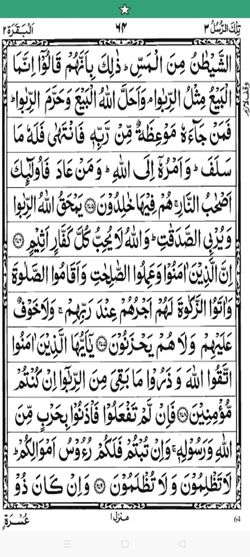 تِلْكَ الرُّسُلُ ٣ ٦٤ اَلْبَقَرَة ٢
الشَّيْطٰنُ مِنَ الْمَسِّ ؕ ذٰلِكَ بِاَنَّهُمْ قَالُوْۤا اِنَّمَا
الْبَيْعُ مِثْلُ الرِّبٰوا ۘ وَاَحَلَّ اللّٰهُ الْبَيْعَ وَحَرَّمَ الرِّبٰوا ؕ
فَمَنْ جَآءَهٗ مَوْعِظَةٌ مِّنْ رَّبِّهٖ فَانْتَهٰى فَلَهٗ مَا
سَلَفَ ؕ وَاَمْرُهٗۤ اِلَى اللّٰهِ ؕ وَمَنْ عَادَ فَاُولٰٓئِكَ
اَصْحٰبُ النَّارِ ۚ هُمْ فِيْهَا خٰلِدُوْنَ ﴿٢٧٥﴾ يَمْحَقُ اللّٰهُ الرِّبٰوا
وَيُرْبِى الصَّدَقٰتِ ؕ وَاللّٰهُ لَا يُحِبُّ كُلَّ كَفَّارٍ اَثِيْمٍ ﴿٢٧٦﴾
اِنَّ الَّذِيْنَ اٰمَنُوْا وَعَمِلُوا الصّٰلِحٰتِ وَاَقَامُوا الصَّلٰوةَ
وَاٰتَوُا الزَّكٰوةَ لَهُمْ اَجْرُهُمْ عِنْدَ رَبِّهِمْ ۚ وَلَا خَوْفٌ
عَلَيْهِمْ وَلَا هُمْ يَحْزَنُوْنَ ﴿٢٧٧﴾ يٰۤاَيُّهَا الَّذِيْنَ اٰمَنُوا
اتَّقُوا اللّٰهَ وَذَرُوْا مَا بَقِىَ مِنَ الرِّبٰۤوا اِنْ كُنْتُمْ
مُّؤْمِنِيْنَ ﴿٢٧٨﴾ فَاِنْ لَّمْ تَفْعَلُوْا فَاْذَنُوْا بِحَرْبٍ مِّنَ
اللّٰهِ وَرَسُوْلِهٖ ۚ وَاِنْ تُبْتُمْ فَلَكُمْ رُءُوْسُ اَمْوَالِكُمْ ۚ
لَا تَظْلِمُوْنَ وَلَا تُظْلَمُوْنَ ﴿٢٧٩﴾ وَاِنْ كَانَ ذُوْ
عُسْرَةٍ منزل ١ 64